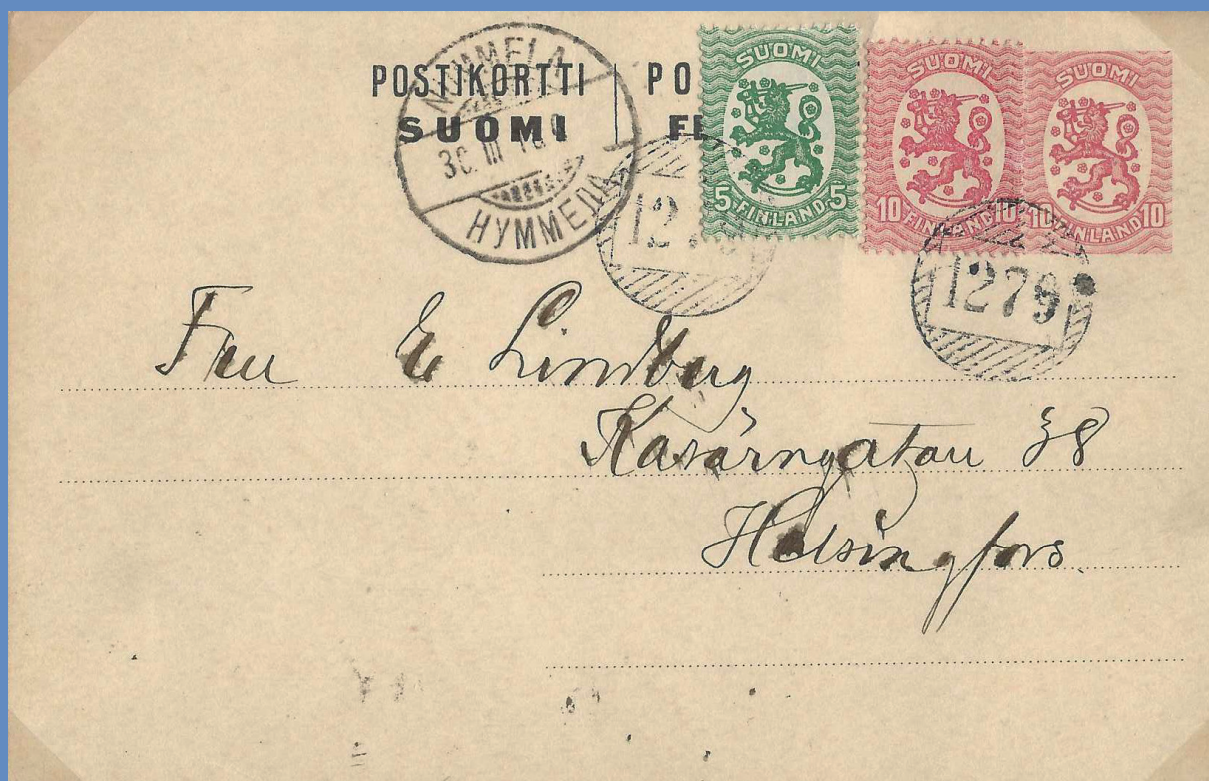 POSTIKORTTI PO
SUOMI
NUMMELA
30. III 18
HYMMEΛA
SUOMI
5 FINLAND 5
SUOMI
10 FINLAND 10
SUOMI
10 FINLAND 10
1279
1279
Fru E Lindberg
Kasärngatan 38
Helsingfors.